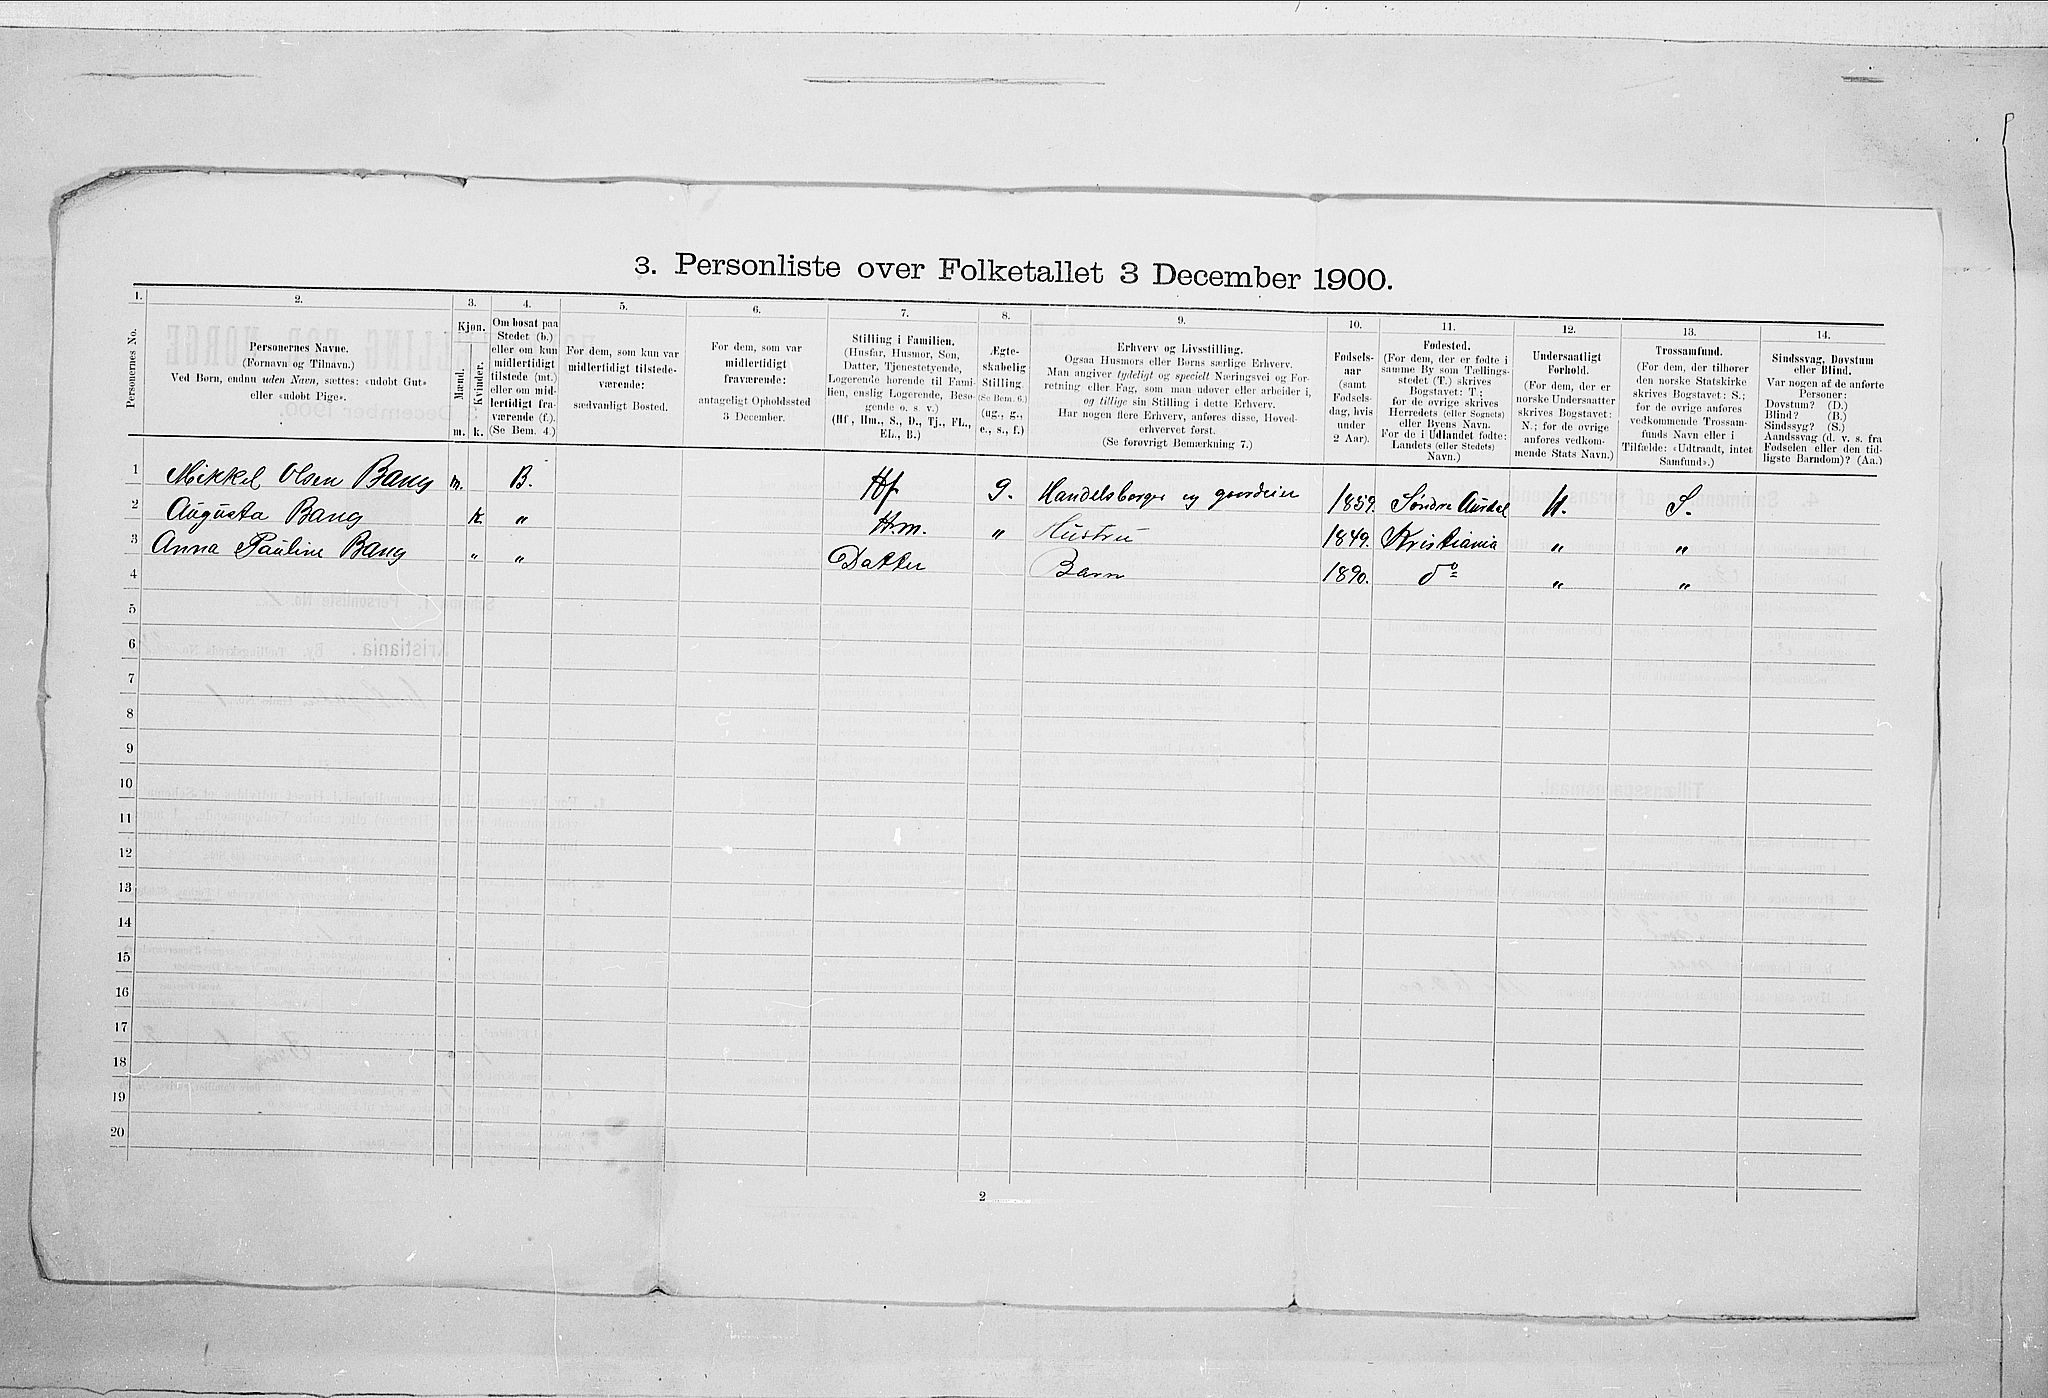 3. Personliste over Folketallet 3 December 1900.
1. 2. 3. 4. 5. 6. 7. 8. 9. 10. 11. 12. 13. 14.
Personernes No.
Personernes Navne.
(Fornavn og Tilnavn).
Ved Børn, endnu uden Navn, sættes: «udøbt Gut»
eller «udøbt Pige».
Kjøn.
Mænd.
Kvinder.
m. k.
Om bosat paa
Stedet (b.)
eller om kun
midlertidigt
tilstede (mt.)
eller om mid-
lertidigt fra-
værende (f.).
(Se Bem. 4.)
For dem, som kun var
midlertidigt tilstede-
værende:
sædvanligt Bosted.
For dem, som var
midlertidigt
fraværende:
antageligt Opholdssted
3 December.
Stilling i Familien.
(Husfar, Husmor, Søn,
Datter, Tjenestetyende,
Logerende hørende til Fami-
lien, enslig Logerende, Besø-
gende o. s. v.)
(Hf., Hm., S., D., Tj., FL.,
EL., B.)
Ægte-
skabelig
Stilling.
(Se Bem. 6.)
(ug., g.,
e., s., f.)
Erhverv og Livsstilling.
Ogsaa Husmors eller Børns særlige Erhverv.
Man angiver tydeligt og specielt Næringsvei og For-
retning eller Fag, som man udøver eller arbeider i,
og tillige sin Stilling i dette Erhverv.
Har nogen flere Erhverv, anføres disse, Hoved-
erhvervet først.
(Se forøvrigt Bemærkning 7.)
Fødsels-
aar
(samt
Fødsels-
dag, hvis
under
2 Aar).
Fødested.
(For dem, der er fødte i
samme By som Tællings-
stedet (T.) skrives
Bogstavet: T;
for de øvrige skrives
Herredets (eller Sognets)
eller Byens Navn.
For de i Udlandet fødte:
Landets (eller Stedets)
Navn.)
Undersaatligt
Forhold.
(For dem, der er
norske Undersaatter
skrives Bogstavet:
N.; for de øvrige
anføres vedkom-
mende Stats Navn.)
Trossamfund.
(For dem, der tilhører
den norske Statskirke
skrives Bogstavet: S.;
for de øvrige anføres
vedkommende Trossam-
funds Navn eller i
Tilfælde: «Udtraadt, intet
Samfund».)
Sindssvag, Døvstum
eller Blind.
Var nogen af de anførte
Personer:
Døvstum? (D.)
Blind? (B.)
Sindssyg? (S.)
Aandssvag (d. v. s. fra
Fødselen eller den tid-
ligste Barndom)? (Aa.)
1 Mikkel Olsen Bang m. B. Hf g. Handelsborger og gaardeier 1859. Søndre Aurdal N. S.
2 Augusta Bang k. " Hm. " Hustru 1849. Kristiania " "
3 Anna Pauline Bang " " Datter Barn 1890. do " "
4
5
6
7
8
9
10
11
12
13
14
15
16
17
18
19
20
2